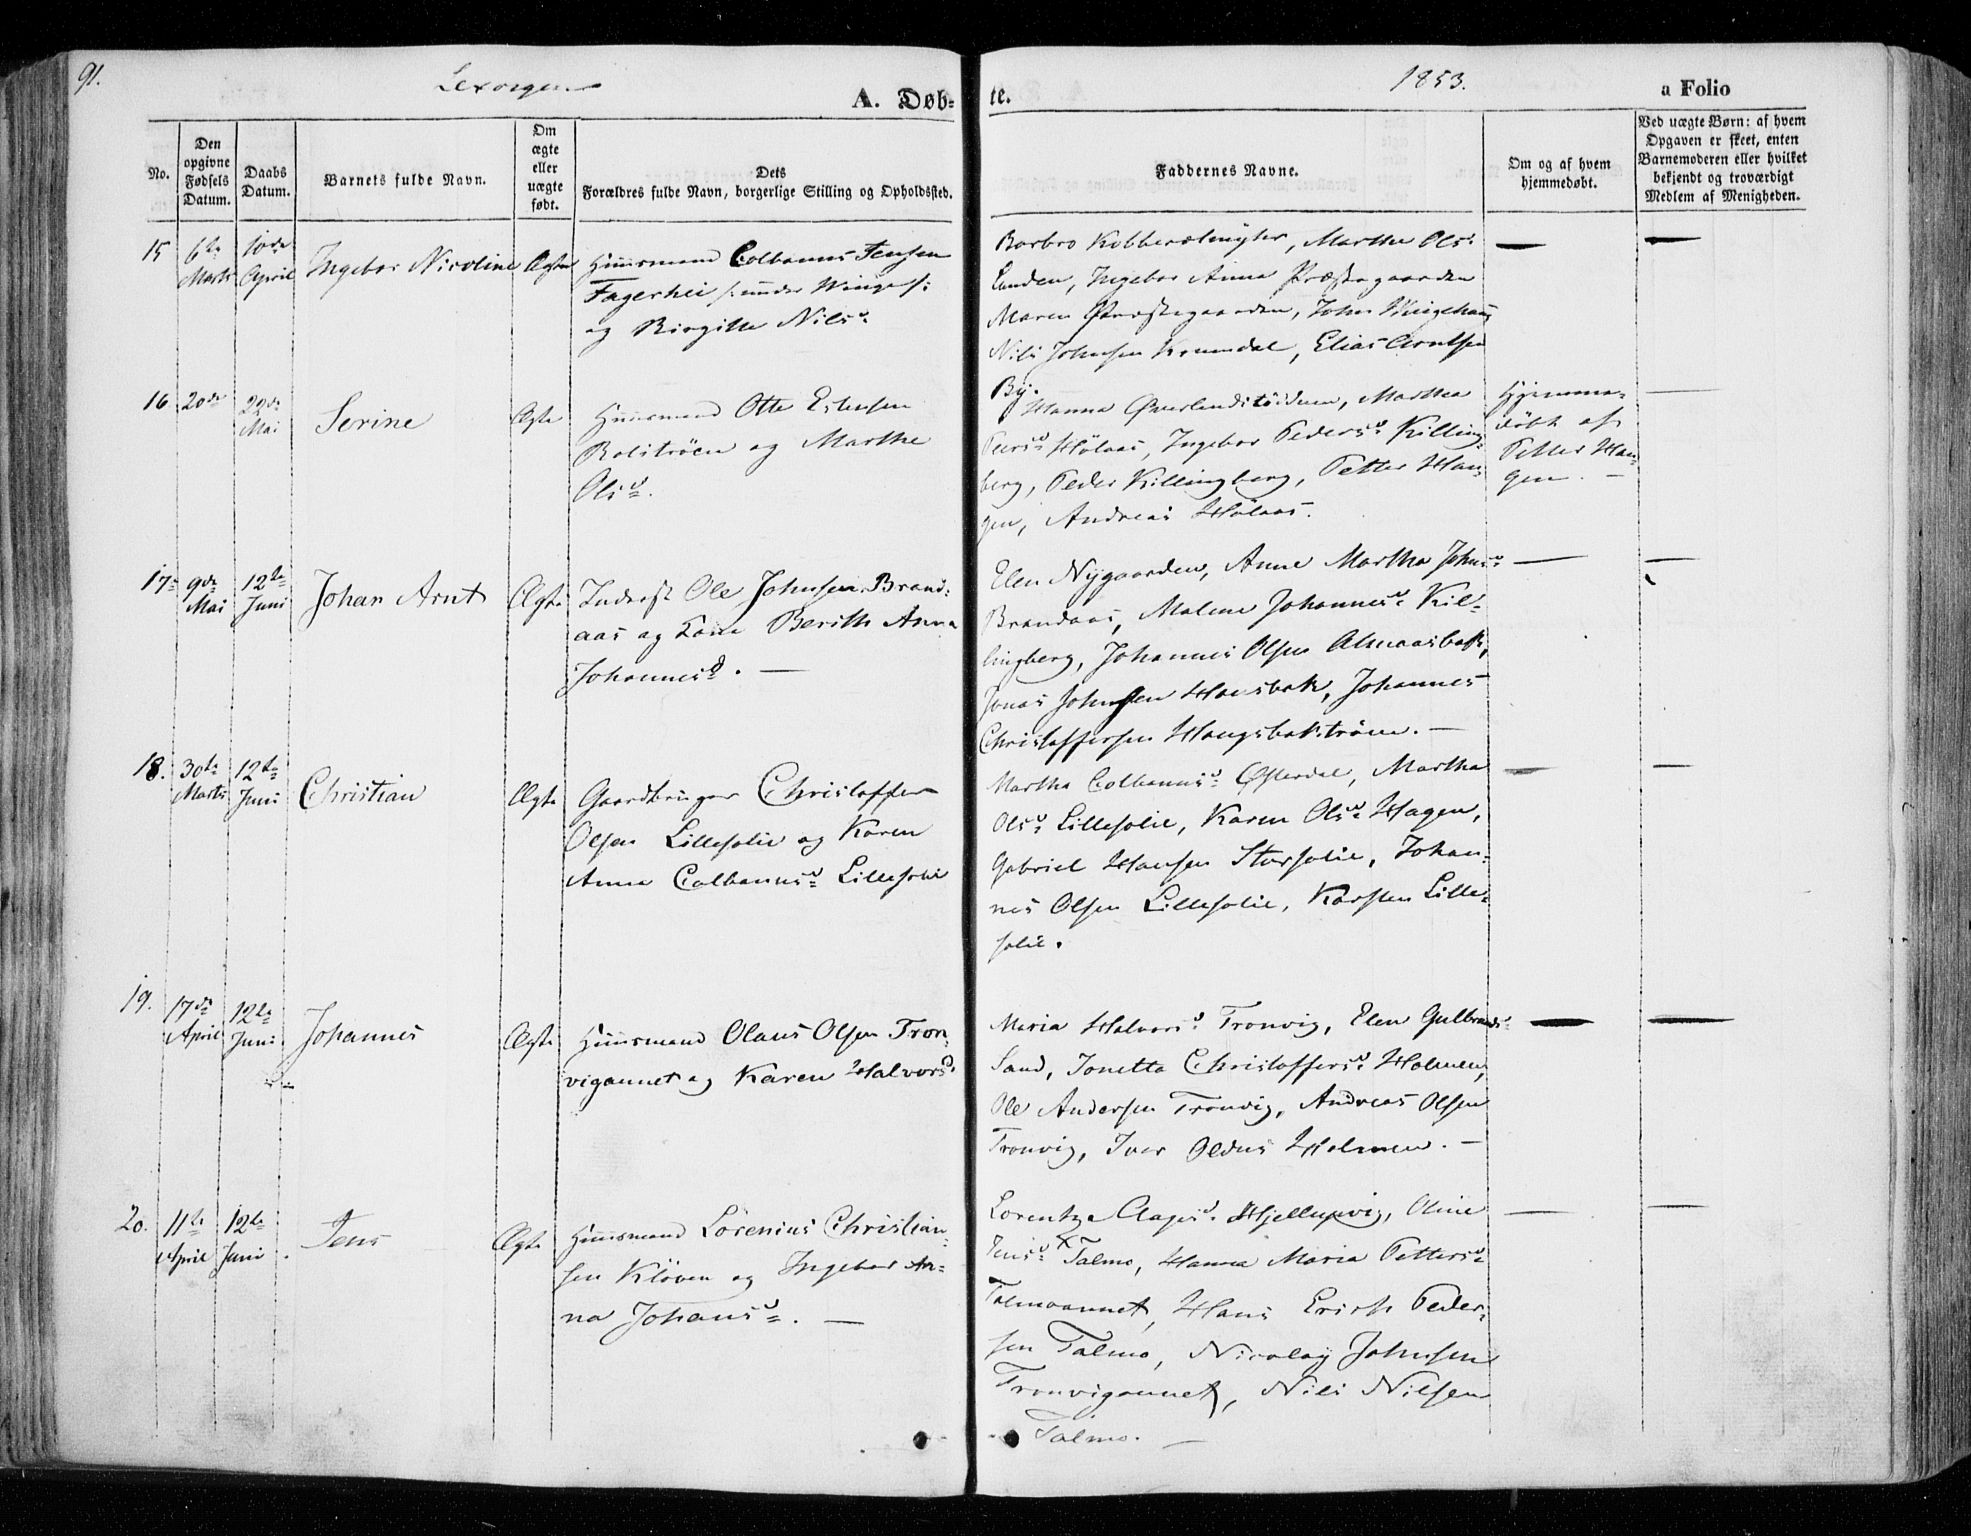 91.
1853.
A. Døb-
te.
a Folio
No.
Den
opgivne
Fødsels
Datum.
Daabs
Datum.
Barnets fulde Navn.
Om
ægte
eller
uægte
født.
Dets
Forældres fulde Navn, borgerlige Stilling og Opholdssted.
Faddernes Navne.
Om og af hvem
hjemmedøbt.
Ved uægte Børn: af hvem
Opgaven er skeet, enten
Barnemoderen eller hvilket
bekjendt og troværdigt
Medlem af Menigheden.
15
6te
Marts
10de
April
Ingebor Nicoline
Ægte
Huusmand Colbanus Jensen
Fagerhei /: under Winge :/
og Birgitte Nilsd.
Barbro, Marthe Olsd.
Lunden, Ingebor Anna Præstegaarden
Maren Præstegaarden, John Wingehaug
Nils Johnsen, Elias Arntsen
By.
16.
20de
22de
Mai
Serine
Ægte
Huusmand Otte Estensen
og Marthe
Olsd.
Hanna, Marthea
Peersd. Hölaas, Ingebor Pedersd. Killing-
berg, Peder Killingberg, Petter Hau-
gen, Andreas Hölaas.
Hjemme-
döbt af
Petter Hau-
gen.
17.
9de
Mai
12te
Juni
Johan Arnt
Ægte
Inderst Ole Johnsen Brand-
aas og Kone Berith Anna
Johannesd.
Elen Nygaarden, Anne Martha Johnsd.
Brandaas, Malene Johannesd. Kil-
lingberg, Johannes Olsen Almaasbak,
Jonas Johnsen Haugsbak, Johannes
Christoffersen Haugsbakströen.
18.
30te
Marts
12te
Juni
Christian
Ægte
Gaardbruger Christoffer
Olsen Lillesolie og Karen
Anna Colbanusd. Lillesolie
Martha Colbanusd. Østerdal, Martha
Olsd. Lillesolie, Karen Olsd. Hagen,
Gabriel Hansen Storsolie, Johan-
nes Olsen Lillesolie, Karsten Lille-
solie.
19.
17de
April
12te
Juni
Johannes
Ægte
Huusmand Olaus Olsen Tron-
vigaunet og Karen Halvorsd.
Maria Halvorsd. Tronvig, Elen Gulbrandsd.
Sand, Jonetta Christoffersd. Holmen,
Ole Andersen Tronvig, Andreas Olsen
Tronvig, Iver Oldus Holmen.
20.
11te
April
12te
Juni
Jens
Ægte
Huusmand Lorenius Christian-
sen Klöven og Ingebor An-
na Johansd.
Lorentze Aagesd. Hjellupvig, Oline
Jensd. Talmo, Hanna Maria Pettersd.
Talmoaunet, Hans Erich Peder-
sen Talmo, Nicolay Johnsen
Tronvigaunet, Nils Nilsen
Talmo.